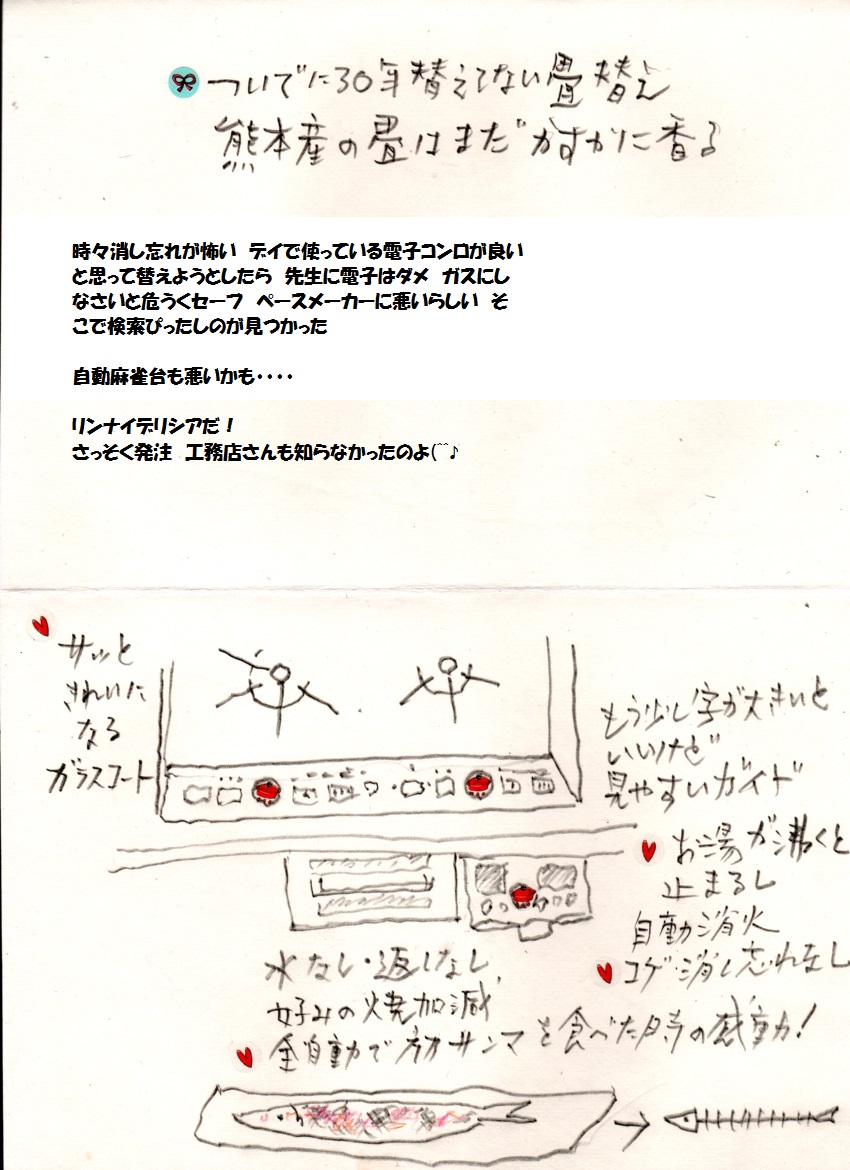 ついでに30年替えてない畳替え
熊本産の畳はまだかすかに香る
時々消し忘れが怖い　デイで使っている電子コンロが良い
と思って替えようとしたら　先生に電子はダメ　ガスにし
なさいと危うくセーフ　ペースメーカーに悪いらしい　そ
こで検索ぴったしのが見つかった
自動麻雀台も悪いかも・・・・
リンナイデリシアだ！
さっそく発注　工務店さんも知らなかったのよ(^^♪
サッと
きれいに
なる
ガラスコート
もう少し字が大きいと
いいけど
見やすいガイド
お湯が沸くと
止まるし
自動消火
コゲ・消し忘れなし
水なし・返しなし
好みの焼加減
全自動で
サンマを食べた時の感動！